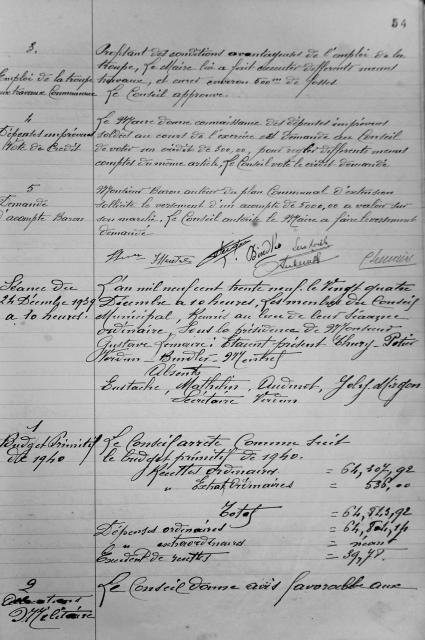 54
3.
Emploi de la troupe
aux travaux Communaux
Profitant des conditions avantageuses de l'emploi de la
troupe, Le Maire lui a fait executer différents menus
travaux, et curer environ 500 m de fossés.
Le Conseil approuve.
4
Dépenses imprévues
Vote de Crédit
Le Maire donne connaissance des dépenses imprévues
soldées au cours de l'exercice et demande au Conseil
de voter un crédit de 500,00, pour régler différents menus
comptes du même article, Le Conseil vote le crédit demandé.
5
Demande
d'acompte Baron
Monsieur Baron auteur du plan Communal d'extension
sollicite le versement d'un acompte de 5000,00 à valoir sur
son marché. Le Conseil autorise le Maire à faire le versement
demandé
Séance du
24 Décembre 1939
à 10 heures.
L'an mil neuf cent trente neuf, le Vingt quatre
Décembre à 10 heures, Les membres du Conseil
Municipal, Réunis au lieu de leur Séance
Ordinaire, Sous la présidence de Monsieur
Gustave Lemaire: Etaient présent Thury
Verdun
Absents
Eustache, Mathelin,
Secrétaire Verdun
1
Budget Primitif
de 1940
Le Conseil arrête Comme suit
le budget primitif de 1940.
Recettes Ordinaires = 64,307,92
" Extraordinaires = 536,00
Total = 64,843,92
Dépenses ordinaires = 64,804,14
" extraordinaires néant
Excédent de recettes = 39,78.
2
Militaire
Le Conseil donne avis favorable aux